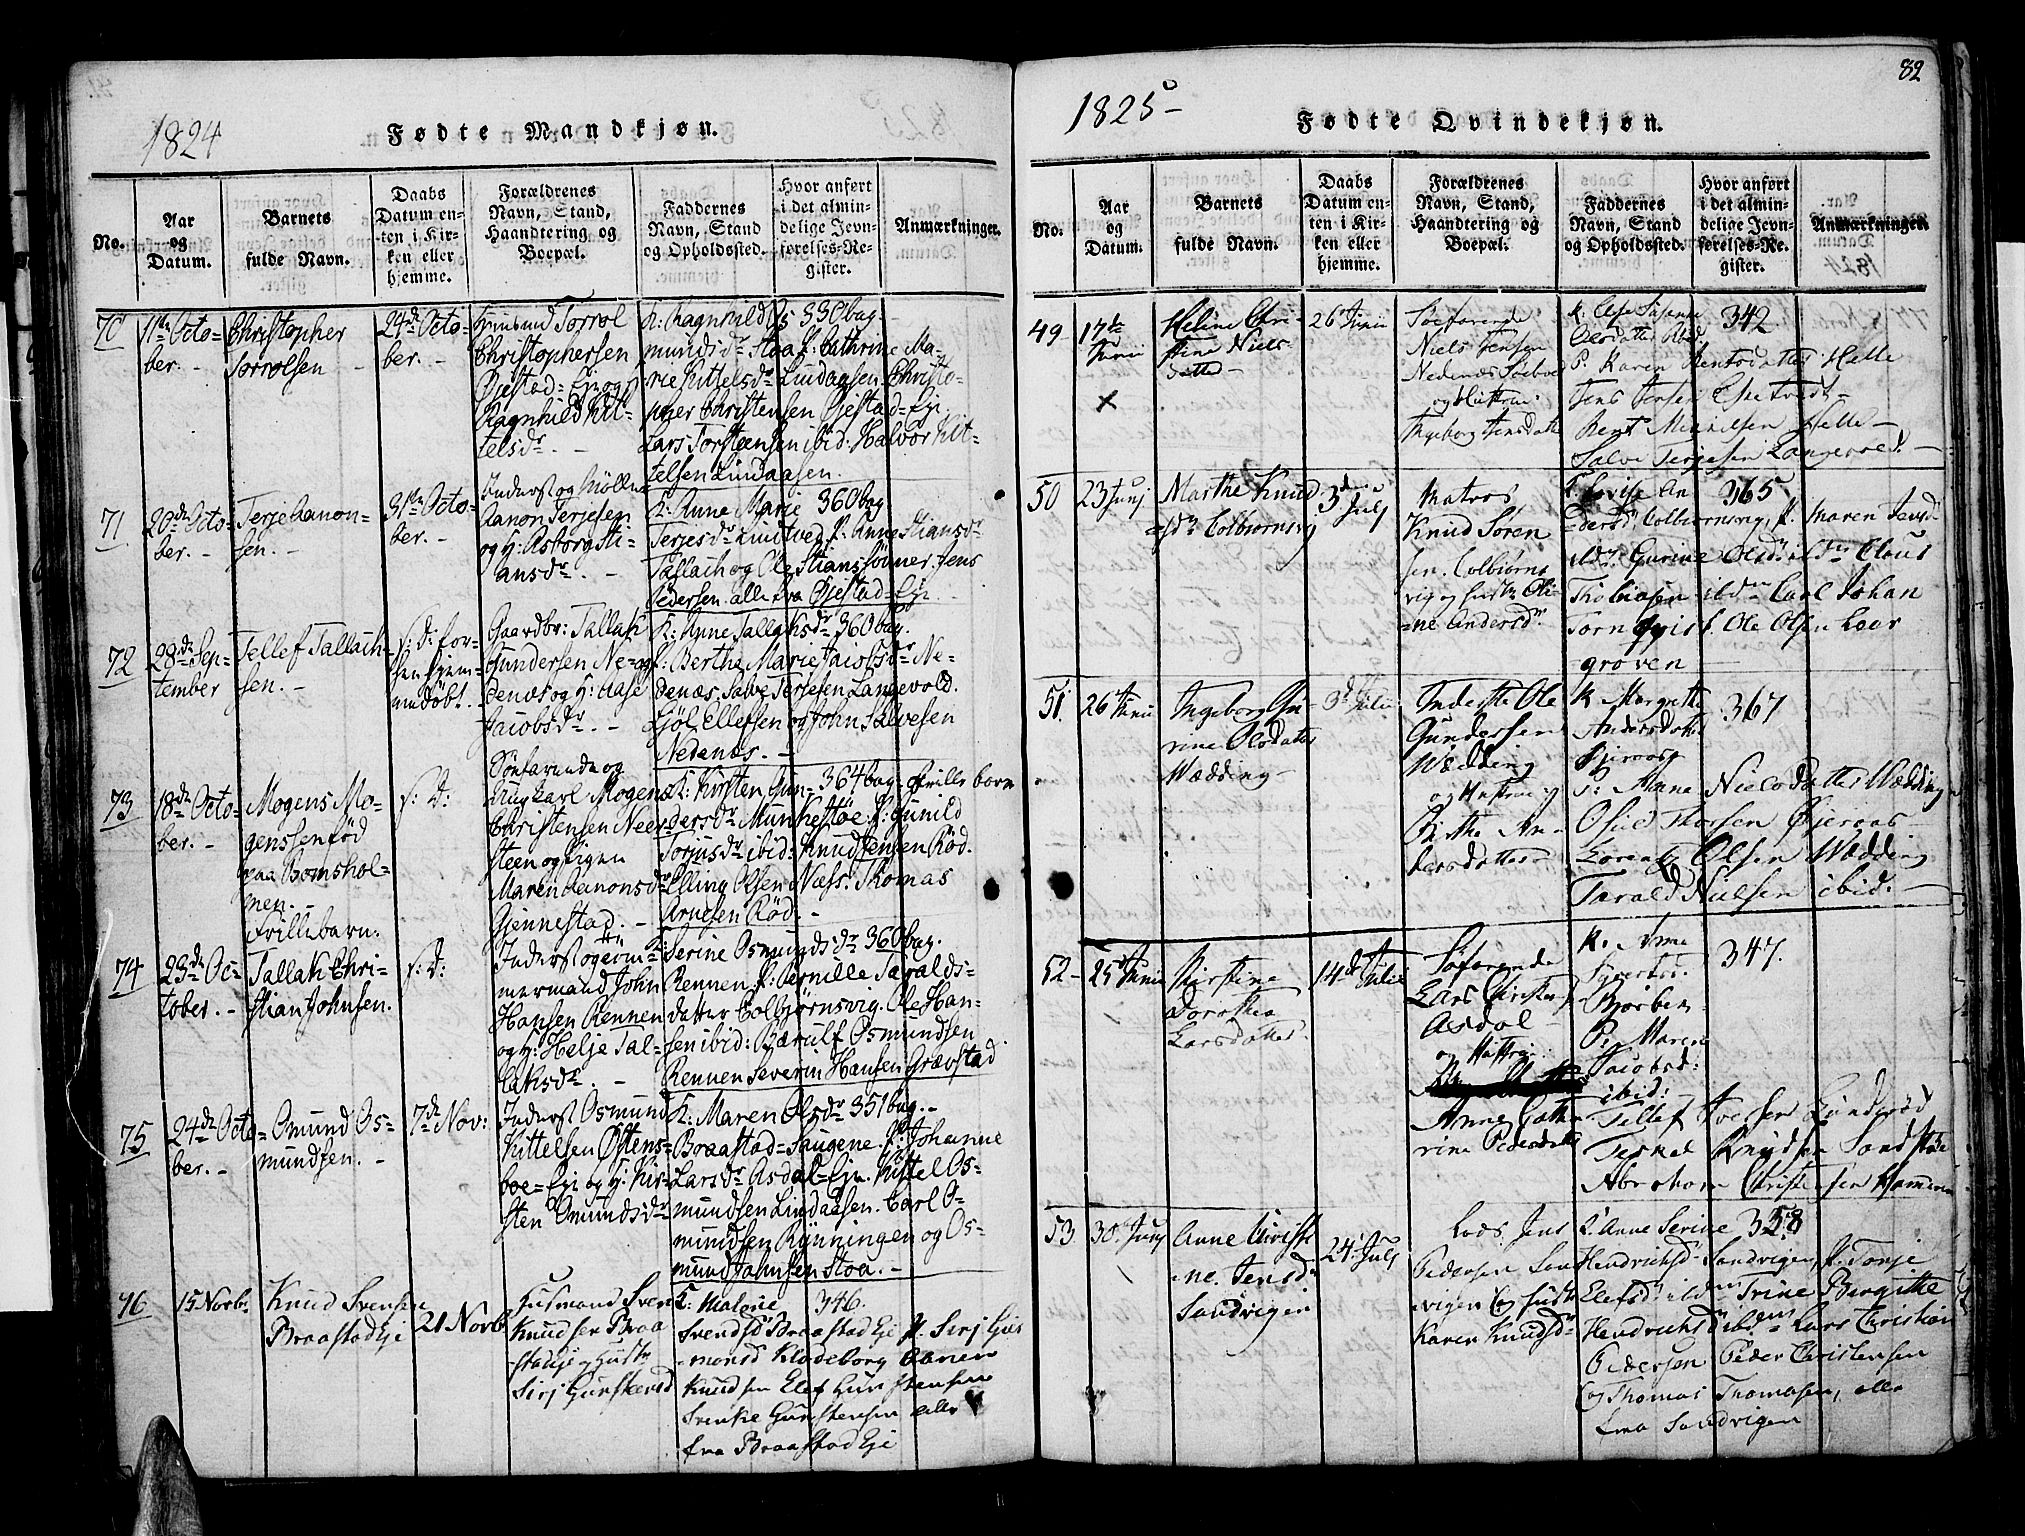 1824
Fødte Mandkjøn.
No.
Aar og Datum.
Barnets fulde Navn.
Daabs Datum enten i Kirken eller hjemme.
Forældrenes Navn, Stand, Haandtering og Boepæl.
Faddernes Navn, Stand og Opholdssted.
Hvor anført i det almindelige Jevnførelses-Register.
Anmærkninger.
70
11te Octo-
ber. -
Christopher
Torrolsen -
24de Octo-
ber. -
Torrol
Christophersen
Øjestad-Eje og
Ragnhild Kit-
telsdr. -
K: Ragnhild Os- 330 bag.
mundsdr Stoa P: Cathrine Ma-
rie Kittelsdr Lindaasen. Christo-
pher Christensen Øjestad-Eje
Lars Torsteensen ibid: Halvor Kit-
telsen Lindaasen.
71
20de Octo-
ber. -
Terje Aanon-
sen. -
31te Octo-
ber. -
Inderst og Møller
Aanon Terjesen
og H: Asborg Sti-
ansdr. -
K: Anne Marie 360 bag
Terjesdr P: Anne Stiansdr
Tallach og Ole Stians Sønner. Jens
Pedersen alle fra Øjestad-Eje.
72
28de Sep-
tember
Tellef Tallach-
sen. -
s: D: for-
hen hjem-
medøbt.
Gaardbr: Tallak
Gundersen Ne-
denæs og H: Aase
Jacobsdr. -
K: Anne Tallaksdr 360 bag.
P: Berthe Marie Jacobsdr Ne-
denæs, Salve Terjesen Langevold.
Ellefsen og John Salvesen
Nedenæs. -
73
18de Octo-
ber. -
Mogens Mo-
genssen fød
paa Bomshol-
men. -
Frillebarn.
s: D:
Søefarende og
Ungkarl Mogens
Christensen Neer-
steen og Pigen
Maren Aanonsdr
Gjennestad. -
K: Kirsten Gun- 364 bag. Frillebarn
dersdr Munkestøe P: Gunild
Torjusdr ibid: Knud Jensen Rød.
Elling Olsen Næss. Thomas
Arnesen Rød. -
74
23de Oc-
tober. -
Tallak Chri-
stian Johnsen.
s: D:
Inderst og Tøm-
mermand John
Hansen Rennen
og H: Helje Tal-
laksdr. -
K: Serine Osmundsdr 360 bag.
Rennen P: Pernille Taralds-
datter Colbjørnsvig. Ole Han-
sen ibid: Bærulf Osmundsen
Rennen Severin Hansen Grævstad
75
24de Octo-
ber. -
Omund Os-
mundsen. -
7de Nov:
Inderst Osmund
Kittelsen Østens-
boe-Eje og H: Kir-
sten Omundsdr
K: Maren Olsdr 351 bag. -
Braastad-Saugene. P: Johanne
Larsdr Asdal-Eje. Kittel Os-
mundsen Lindaasen. Carl O-
mundsen Rønningen og Os-
mund Johnsen Stoa. -
76
15 Novbr.
Knud Svensen
Braastad Eje
21 Novb
Husmand Sven
Knudsen Braa
stad Eje og Hustr
Sirj Gunstensd
K: Malene 346.
Svendsd Braastad Eje P. Sirj Gus
monsd Klodeborg Aanen
Knudsen Elef Gunstensen
Svenke Gunstensen alle
fra Braastad Eje
82
1825
Fødte Qvindekjøn.
No.
Aar og Datum.
Barnets fulde Navn.
Daabs Datum enten i Kirken eller hjemme.
Forældrenes Navn, Stand, Haandtering og Boepæl.
Faddernes Navn, Stand og Opholdssted.
Hvor anført i det almindelige Jevnførelses-Register.
Anmærkningen
49
17te
Junii
Helene Chri-
stine Niels-
datter
26 Junii
Søefarende
Niels Jensen
Nedenæs
og Hustrue
Ingeborg Jensdatter
K. Else Susanne 342
Olsdatter ibid.
P. Karen Bentsdatter Helle
Jens Jensen Espetvedt
Bent Helle
Salve Terjesen Langevold.
50
23 Junj
Marthe Knud
sdr Colbiørnsvig
3de Julj
Matros
Knud Søren
sen. Colbiørns
vig og Hustr Oli-
ne Andersdr
K. Lovise An 365
dersdr Colbiørnsvig, P. Maren Jensd
ibdm Gurine Olsdr ibdm Claus
Thobiasen ibdm Carl Johan
Tornqvist. Ole Olsen Leer
groven
51.
26 Junii
Ingeborg Gu-
rine Olsdatter
Wædding
3de Julii
Inderste Ole
Gundersen
Wædding
og Hustrue
Birthe An-
dersdatter
K Margrethe 367
Andersdatter
Bjeraas
P. Anne Nielsdatter Wædding
Osuld Thorsen Øjeraas
Olsen Wædding
Tarald Nielsen ibid.
52
25 Junii
Kirstine
Dorothea
Larsdatter
14de Julie
Søfarende
Lars
Asdal
og Hustrue
Anne Cathe
rine Pedersdatter
K. Anne 347.
Bjorben
P. Maren
Jacobsd:
ibid:
Tellef Iversen Lunderød
Terkel Knudsen Sandstøe
Abraham Christensen
53
30. Junj
Anne Christi
ne. Jensdr
Sandvigen
24. Julj
Lods. Jens
Pedersen San
vigen og Hustr
Karen Knudsdr
K. Anne Serine 358
Hendrichsd Sandvigen, P. Tonje
Elefsd ibdm Trine Birgitte
Hendrichsd ibdm Lars Christian
Pedersen Peder Christensen
og Thomas Thomasen, alle
fra Sandvigen